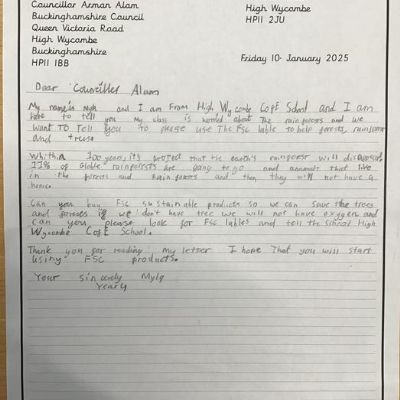 Councillor Arman Alam
Buckinghamshire Council
Queen Victoria Road
High Wycombe
Buckinghamshire
HP11 1BB
High Wycombe
HP11 2JU
Friday 10 January 2025
Dear Councillor Alam
My name is and I am From High Wycombe CofE School and I am
here to tell you my class is worried about The rainforests and we
wanT TO Tell you to please use The FSC lable to help forests, rainforest
and trees
Whithin 100 years, its that the earth's rainforest will
11% of Globle rainforests are going to go and that live
in the forests and Rain forests and then they will not have a
home.
Can you buy FSC sustainable products so we can save the trees
and forests if we don't have tree we will not have oxygen and
can you please look for FSC lables and tell the School High
Wycombe CofE School.
Thank you for reading my letter I hope That you will start
using FSC products.
Your sincerely
Year4